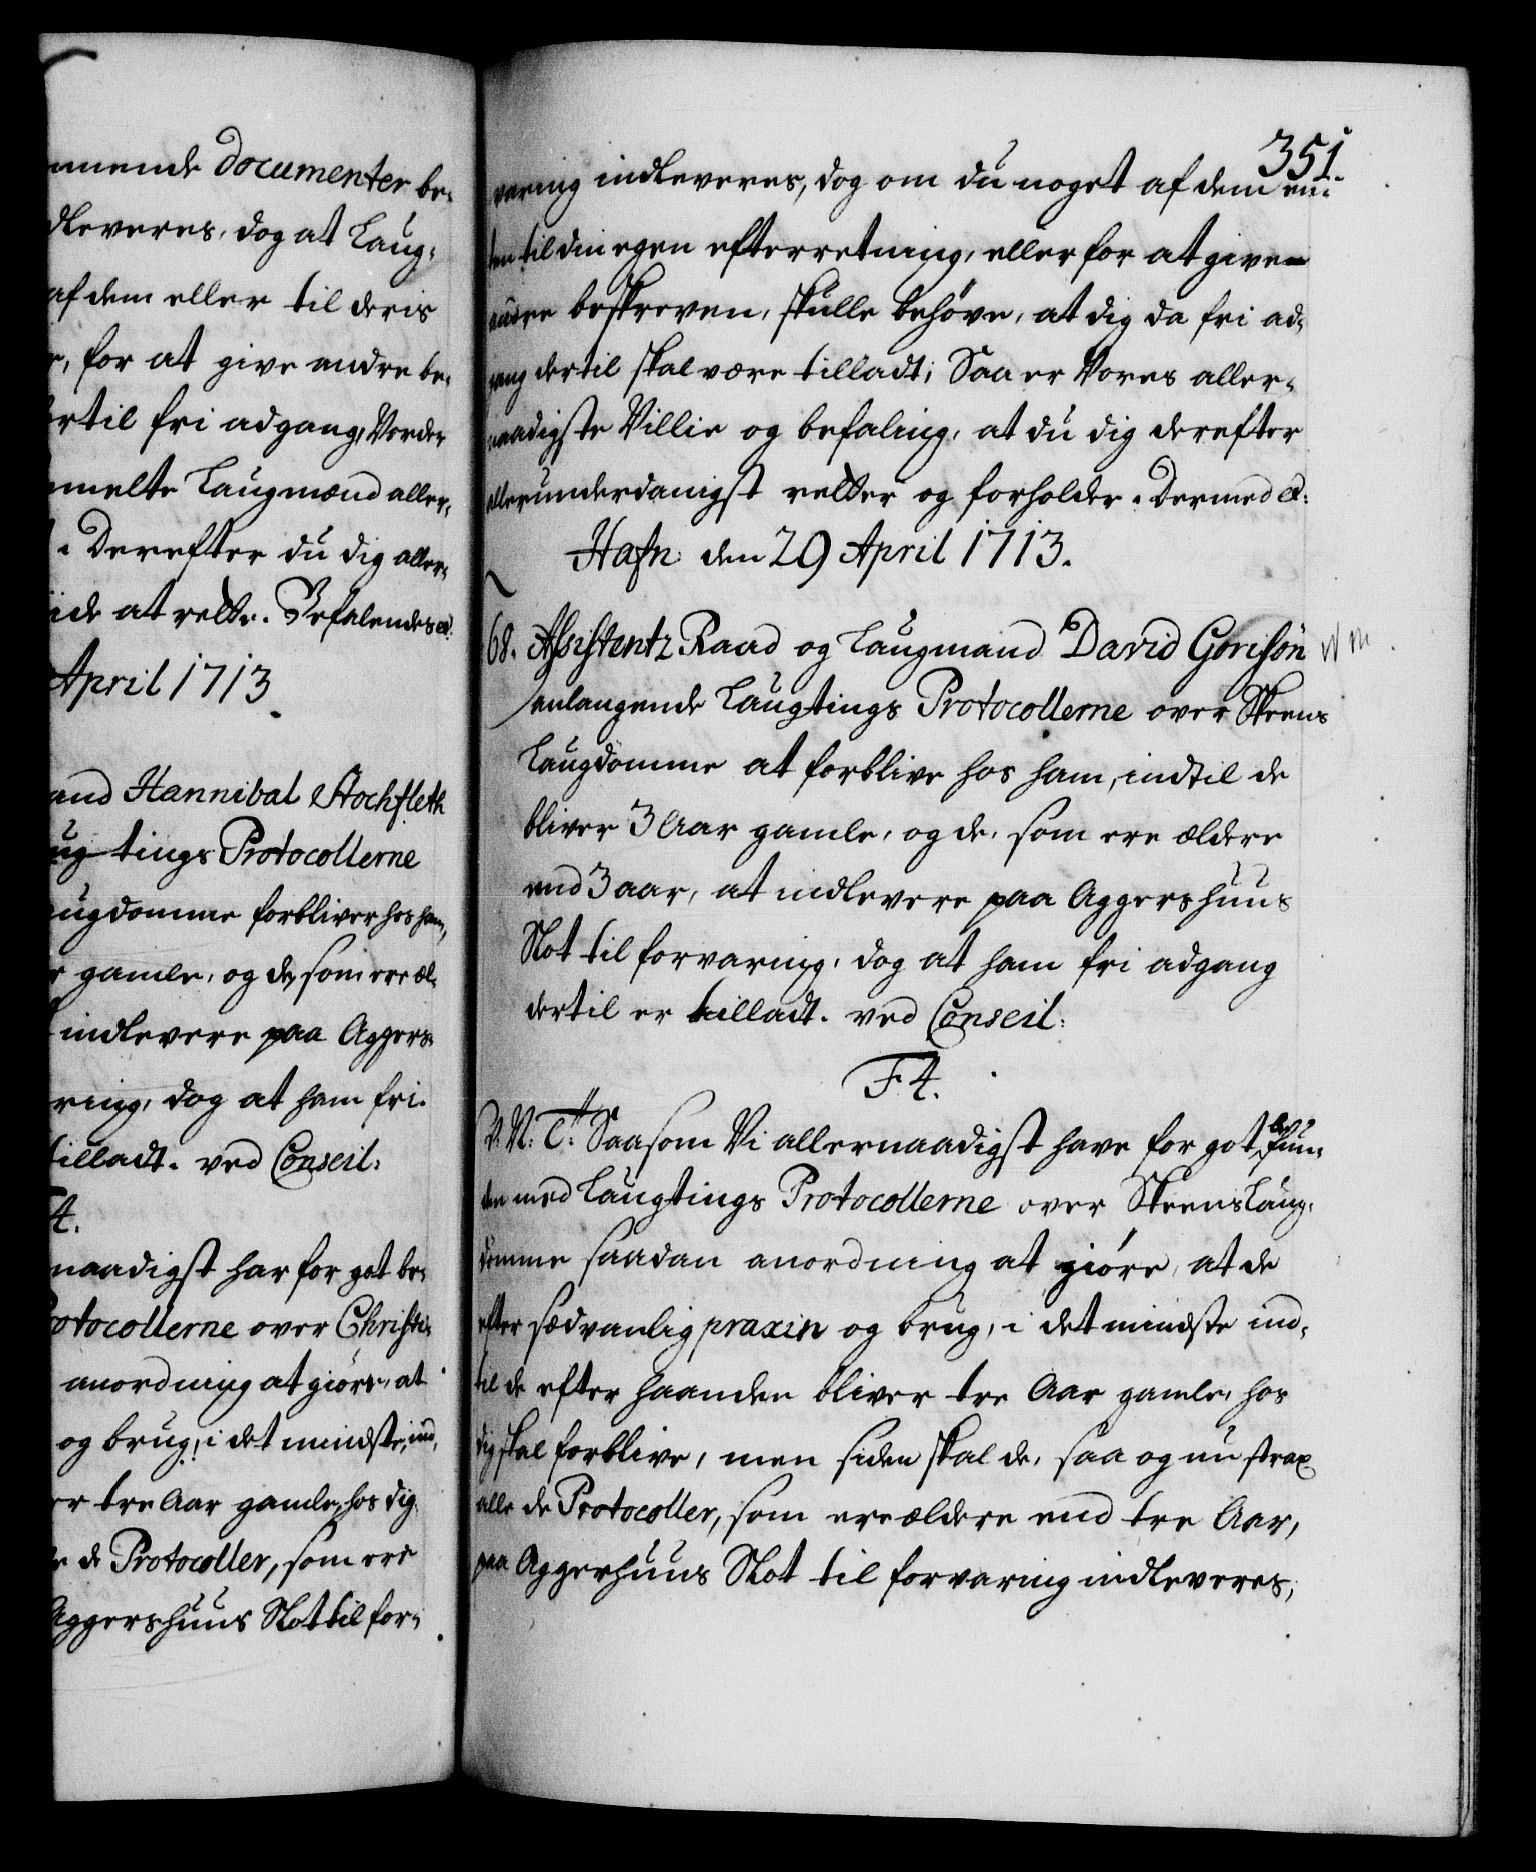 nende documenter be-
dleveres, dog at Laug-
af dem eller til deris
for at give andre be-
ertil fri adgang, Vorder
melte Laugmænd aller-
. Derefter du dig aller-
iide at rette. Befalendes etc:
April 1713.
and Hannibal Stochfleth
ug-tings Protocollerne
augdomme forbliver hos ham,
r gamle, og de, som ere æl-
indlevere paa Aggers-
ring, dog at ham fri-
tilladt. ved Conseil:
F 4.
naadigst har for got be-
rotocollerne over Christi-
anordning at giøre, at
og brug, i det mindste, ind-
er tre Aar gamle, hos dig
de Protocoller, som ere
Aggershuus Slot til for-
351.
varing indleveres, dog om du noget af dem en-
ten til din egen efterretning, eller for at give
andre beskreven, skulle behöve, at dig da fri ad-
gang dertil skal være tilladt; Saa er Vores aller-
naadigste Villie og befaling, at du dig derefter
allerunderdanigst retter og forholder. Dermed etc:
Hafn: den 29 April 1713.
68. Assistentz Raad og Laugmand David Gorisön
anlangende Laugtings Protocollerne over Skeens
Laugdomme at forblive hos ham, indtil de
bliver 3 Aar gamle, og de, som ere ældere
end 3 aar, at indlevere paa Aggershuus
Slot til forvaring, dog at ham fri adgang
dertil er tilladt. ved Conseil:
F 4.
V: N: T: Saasom Vi allernaadigst have for got befun-
den med Laugtings Protocollerne over Skeens Laug-
domme saadan anordning at giøre, at de
efter sædvanlig praxin og brug, i det mindste ind-
til de efter haanden bliver tre Aar gamle, hos
dig skal forblive, men siden skal de, saa og nu strax
alle de Protocoller, som ere ældere end tre Aar,
paa Aggerhuus Slot til forvaring indleveres;